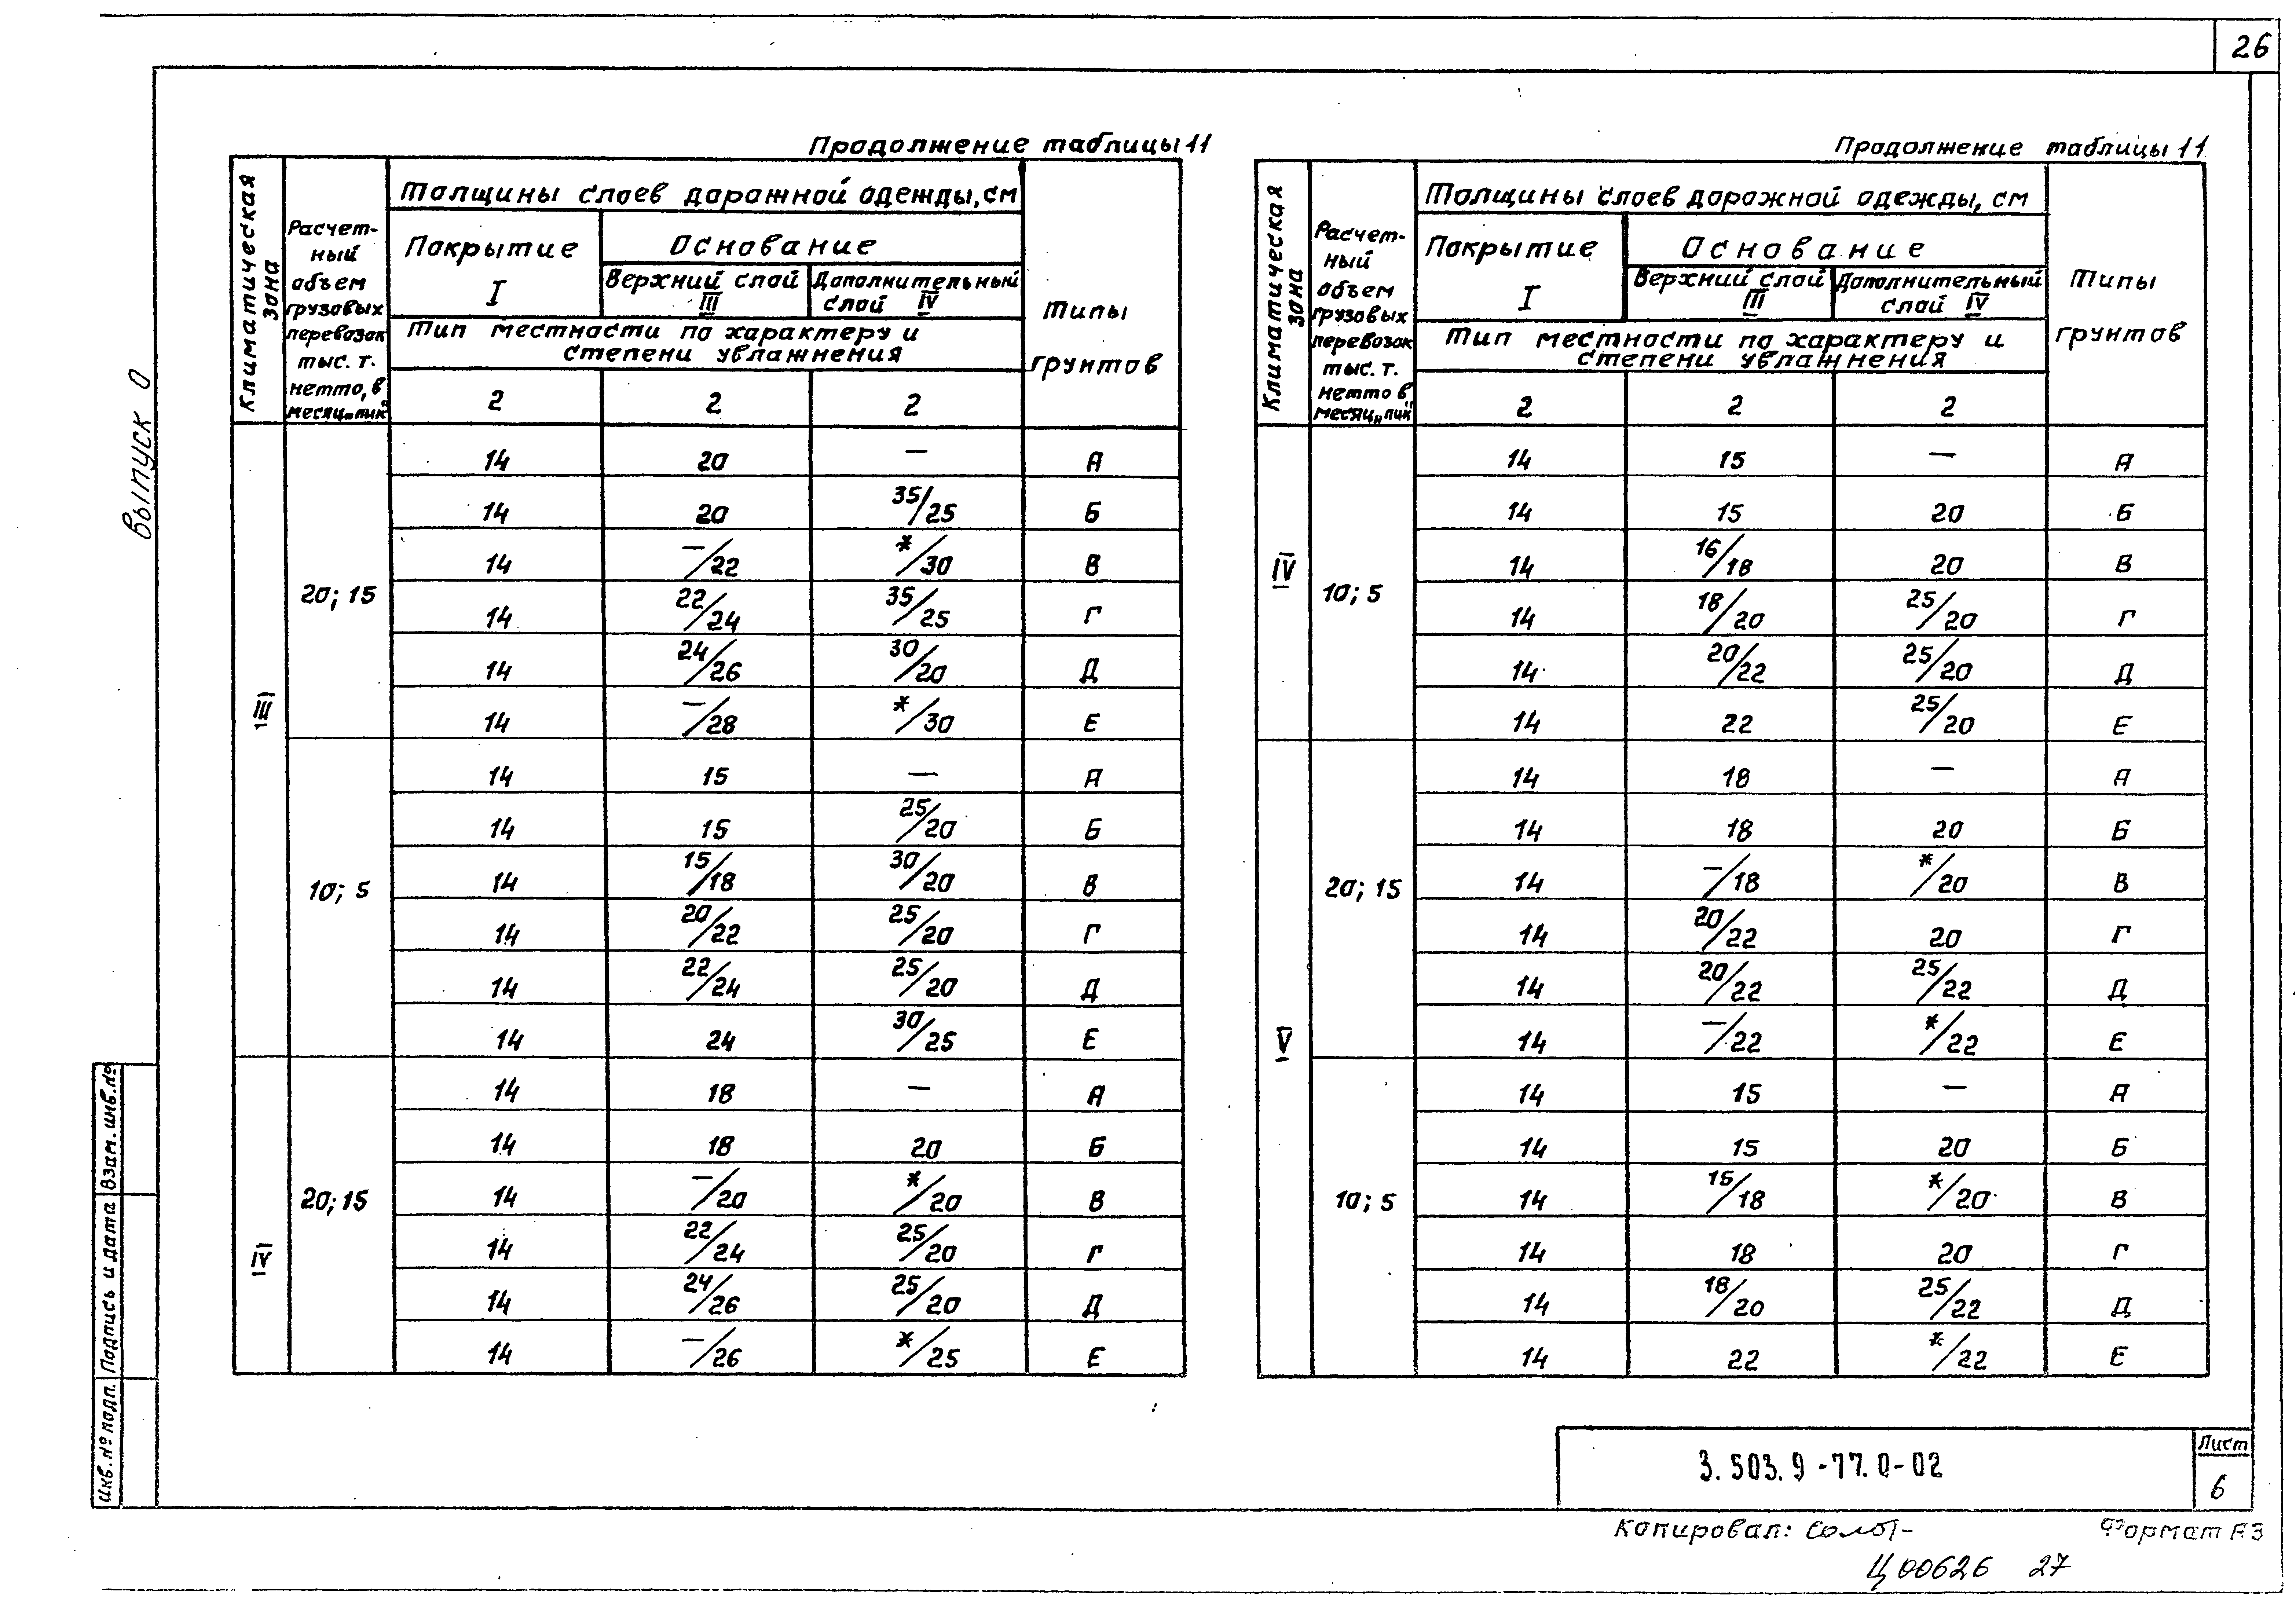 26
Выпуск 0
Продолжение таблицы 11
Климатическая зона
Расчет-
ный
объем
грузовых
перевозок
тыс. т.
нетто, в
месяц „пик"
Толщины слоев дорожной одежды, см
Покрытие
I
Основание
Верхний слой
III
Дополнительный
слой IV
Тип местности по характеру и
степени увлажнения
2 2 2
Типы
грунтов
III
20; 15
14 20 — А
14 20 35/25 Б
14 —/22 */30 В
14 22/24 35/25 Г
14 24/26 30/20 Д
14 —/28 */30 Е
10; 5
14 15 — А
14 15 25/20 Б
14 15/18 30/20 В
14 20/22 25/20 Г
14 22/24 25/20 Д
14 24 30/25 Е
IV
20; 15
14 18 — А
14 18 20 Б
14 —/20 */20 В
14 22/24 25/20 Г
14 24/26 25/20 Д
14 —/26 */25 Е
Продолжение таблицы 11
Климатическая зона
Расчет-
ный
объем
грузовых
перевозок
тыс. т.
нетто в
месяц „пик"
Толщины слоев дорожной одежды, см
Покрытие
I
Основание
Верхний слой
III
Дополнительный
слой IV
Тип местности по характеру и
степени увлажнения
2 2 2
Типы
грунтов
IV
10; 5
14 15 — А
14 15 20 Б
14 16/18 20 В
14 18/20 25/20 Г
14 20/22 25/20 Д
14 22 25/20 Е
V
20; 15
14 18 — А
14 18 20 Б
14 —/18 */20 В
14 20/22 20 Г
14 20/22 25/22 Д
14 —/22 */22 Е
10; 5
14 15 — А
14 15 20 Б
14 15/18 */20 В
14 18 20 Г
14 18/20 25/22 Д
14 22 */22 Е
Инв. № подл. Подпись и дата Взам. инв. №
3.503.9-77.0-02
Лист
6
Копировал:
Формат А3
Ц00626 27